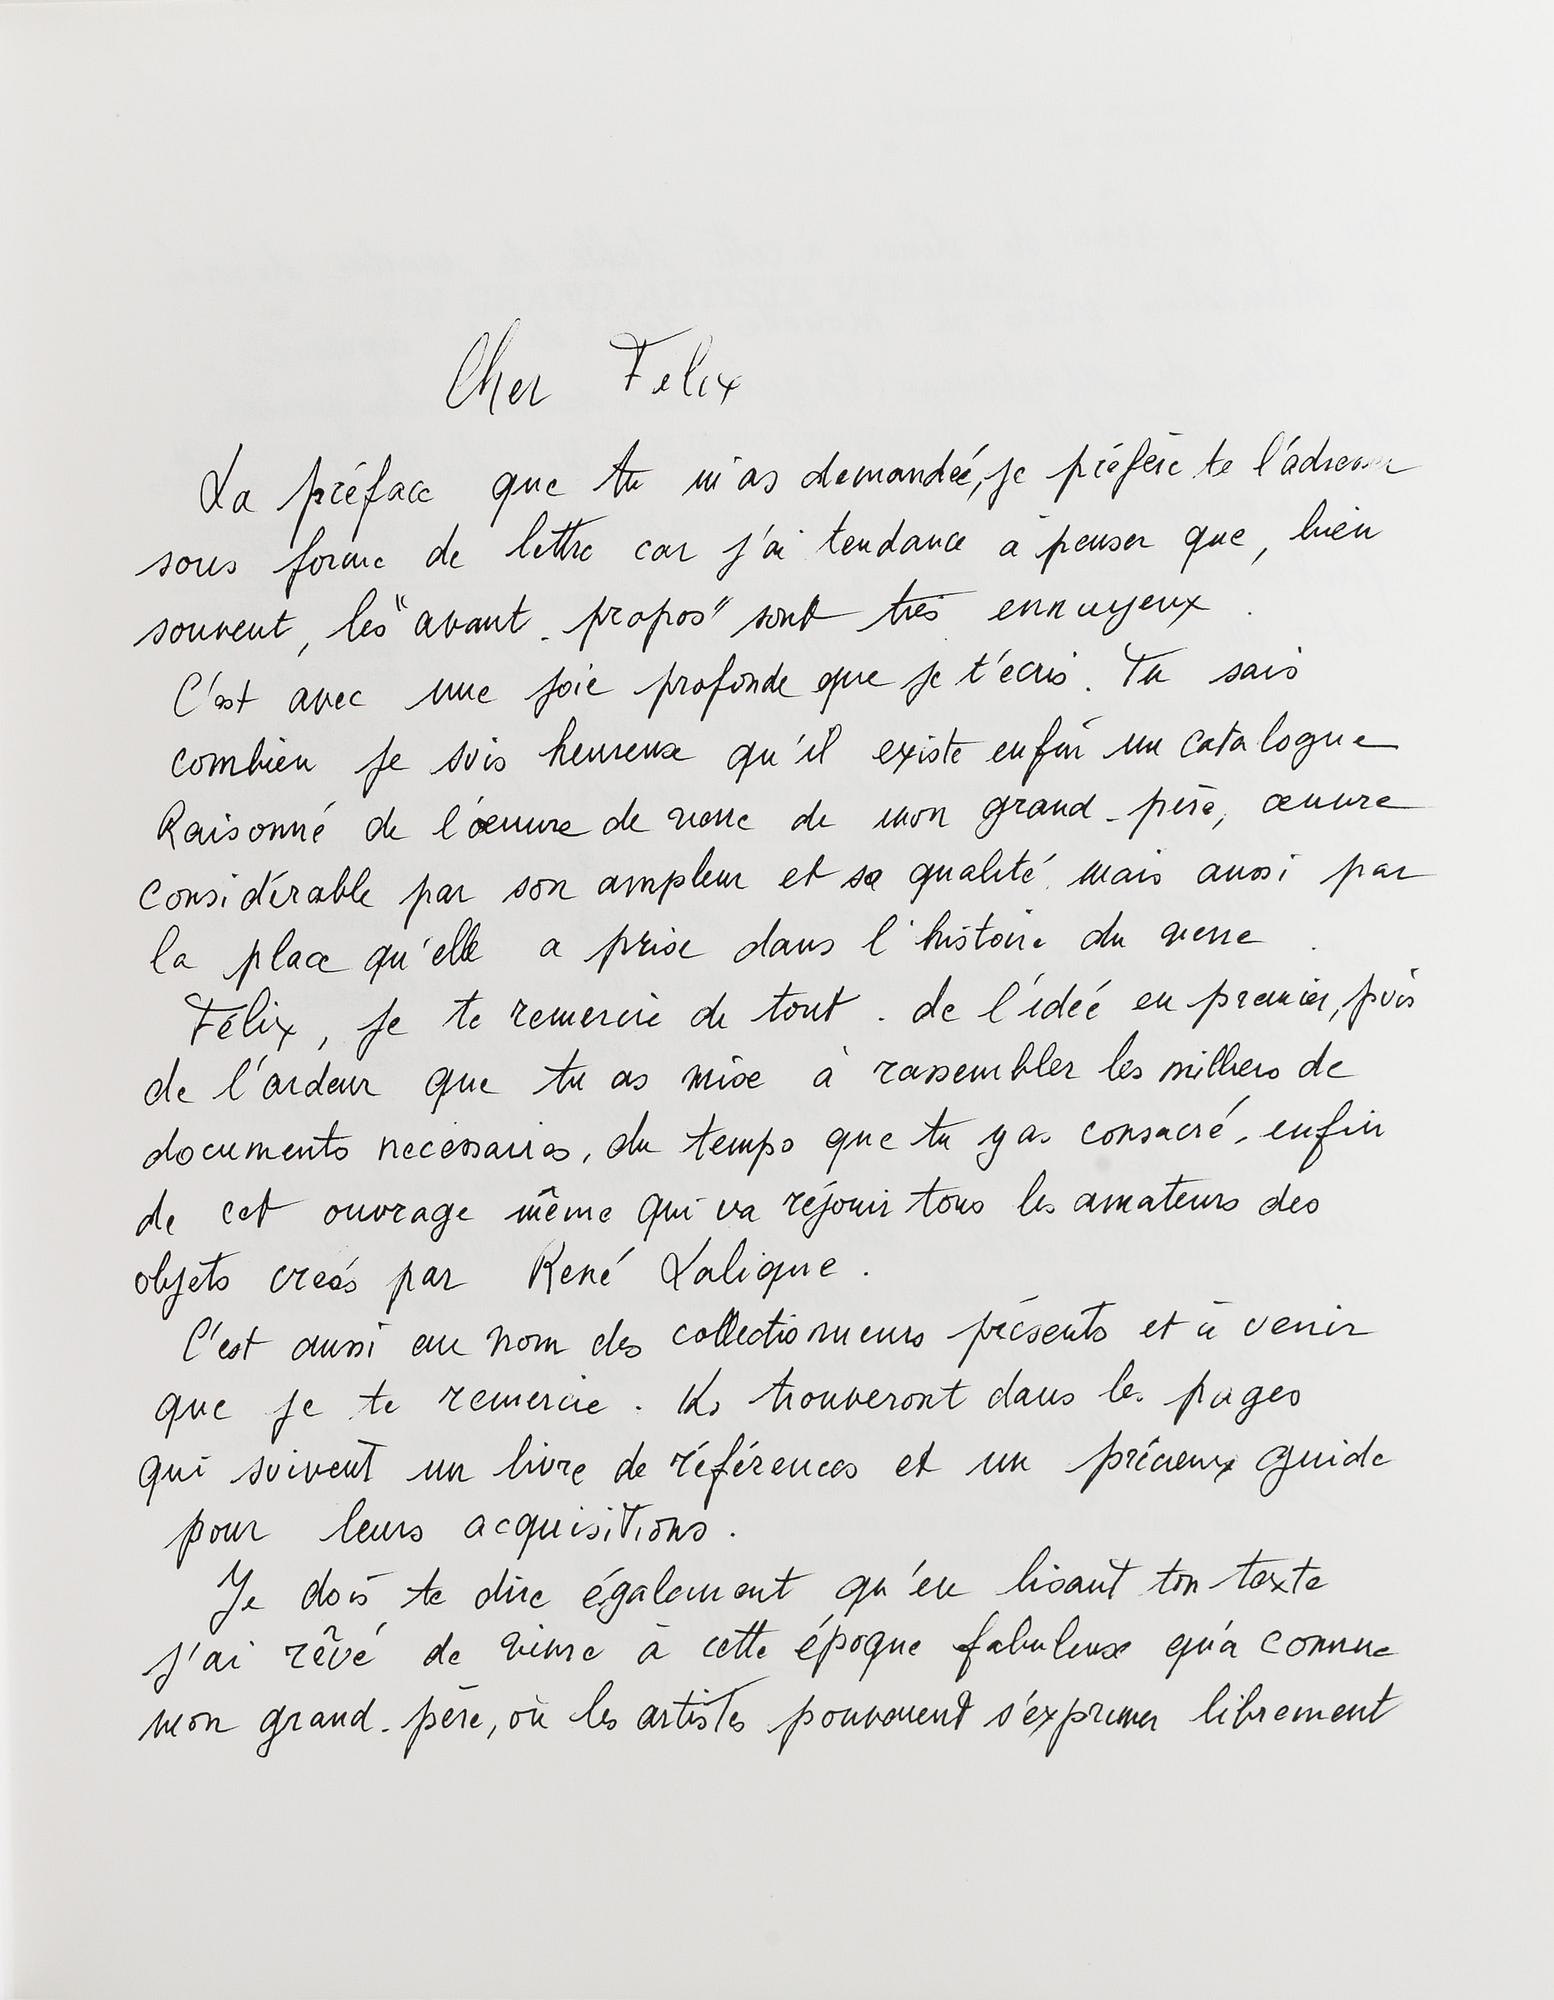 Cher Felix
La préface que tu m'as demandée, je préfère te l'adresser
sous forme de lettre car j'ai tendance à penser que, bien
souvent, les "avant-propos" sont très ennuyeux.
C'est avec une joie profonde que je t'écris. Tu sais
combien je suis heureuse qu'il existe enfin un catalogue
Raisonné de l'oeuvre de verre de mon grand-père, œuvre
considérable par son ampleur et sa qualité mais aussi par
la place qu'elle a prise dans l'histoire du verre.
Félix, je te remercie de tout. de l'idée en premier, puis
de l'ardeur que tu as mise à rassembler les milliers de
documents necessaires, du temps que tu y as consacré, enfin
de cet ouvrage même qui va réjouir tous les amateurs des
objets creés par René Lalique.
C'est aussi au nom des collectionneurs présents et à venir
que je te remercie. Ils trouveront dans les pages
qui suivent un livre de références et un précieux guide
pour leurs acquisitions.
Je dois te dire également qu'en lisant ton texte
j'ai rêvé de vivre à cette époque fabuleuse qu'a connue
mon grand-père, où les artistes pouvaient s'exprimer librement